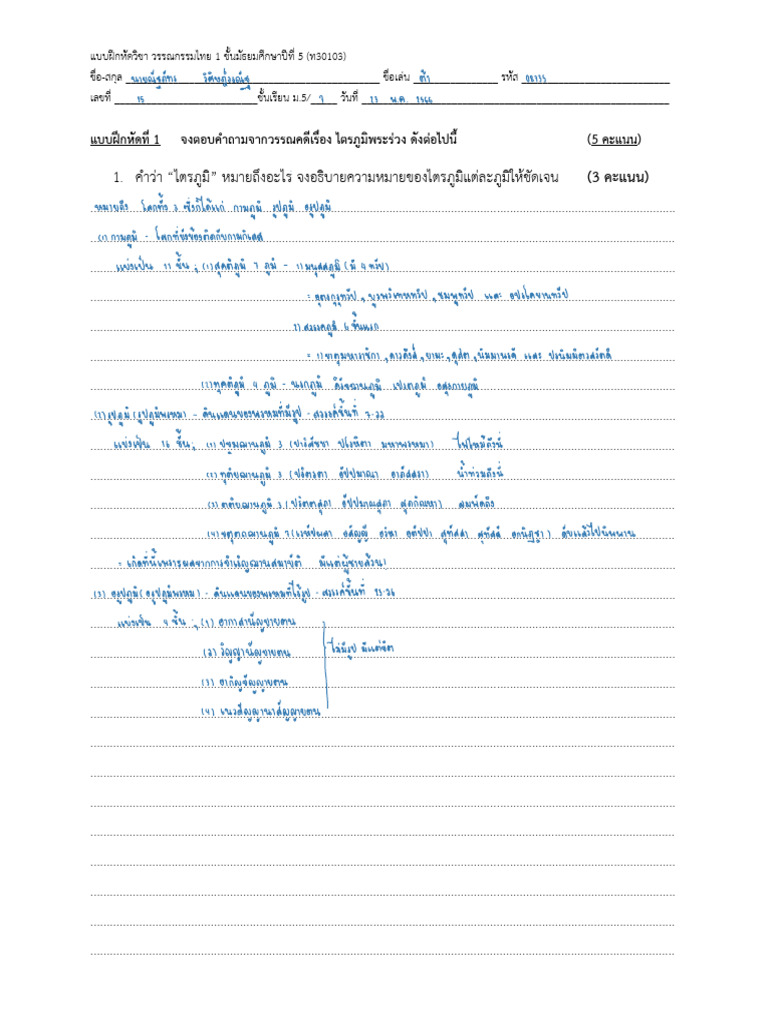 แบบฝึกหัดวิชา วรรณกรรมไทย 1 ชั้นมัธยมศึกษาปีที่ 5 (ท30103)
ชื่อ-สกุล นายณัฐภัทร ชื่อเล่น ต้า รหัส 08135
เลขที่ 15 ชั้นเรียน ม.5/ 7 วันที่ 23 พ.ค. 2566
แบบฝึกหัดที่ 1 จงตอบคำถามจากวรรณคดีเรื่อง ไตรภูมิพระร่วง ดังต่อไปนี้ (5 คะแนน)
1. คำว่า “ไตรภูมิ” หมายถึงอะไร จงอธิบายความหมายของไตรภูมิแต่ละภูมิให้ชัดเจน (3 คะแนน)
หมายถึง โลกทั้ง 3 ซึ่งก็ได้แก่ กามภูมิ รูปภูมิ อรูปภูมิ
(1) กามภูมิ - โลกที่ยังข้องติดกับกามกิเลส
แบ่งเป็น 11 ชั้น ; (1) สุคติภูมิ 7 ภูมิ - 1) มนุสสภูมิ (มี 4 ทวีป)
= อุตรกุรุทวีป , บูรพวิเทหทวีป , ชมพูทวีป และ อปรโคยานทวีป
2) สวรรคภูมิ 6 ชั้นแรก
= 1) จาตุมหาราชิกา , ดาวดึงส์ , ยามะ , ดุสิต , นิมมานรดี และ ปรนิมมิตวสวัตดี
(2) ทุคติภูมิ 4 ภูมิ - นรกภูมิ ดิรัจฉานภูมิ เปรตภูมิ อสุรกายภูมิ
(2) รูปภูมิ (รูปภูมิพรหม) - ดินแดนของพรหมที่มีรูป - สวรรค์ชั้นที่ 7-22
แบ่งเป็น 16 ชั้น ; (1) ปฐมฌานภูมิ 3 (ปาริสัชชา ปโรหิตา มหาพรหมา) ไฟไหม้ถึงนี่
(2) ทุติยฌานภูมิ 3 (ปริตตาภา อัปปมาณา อาภัสสรา) น้ำท่วมถึงนี่
(3) ตติยฌานภูมิ 3 (ปริตตสุภา อัปปมาณสุภา สุภกิณหา) ลมพัดถึง
(4) จตุตถฌานภูมิ 7 (เวหัปผลา อสัญญี อวิหา อตัปปา สุทัสสา สุทัสสี อกนิฏฐา) ดับแล้วไปนิพพาน
= เกิดที่นี้เพราะผลจากการจำเริญฌานสมาบัติ มีแต่ผู้ชายล้วน!
(3) อรูปภูมิ (อรูปภูมิพรหม) - ดินแดนของพรหมที่ไร้รูป - สวรรค์ชั้นที่ 23-26
แบ่งเป็น 4 ชั้น ; (1) อากาสานัญจายตน
(2) วิญญานัญจายตน ไม่มีรูป มีแต่จิต
(3) อากิญจัญญายตน
(4) เนวสัญญานาสัญญายตน